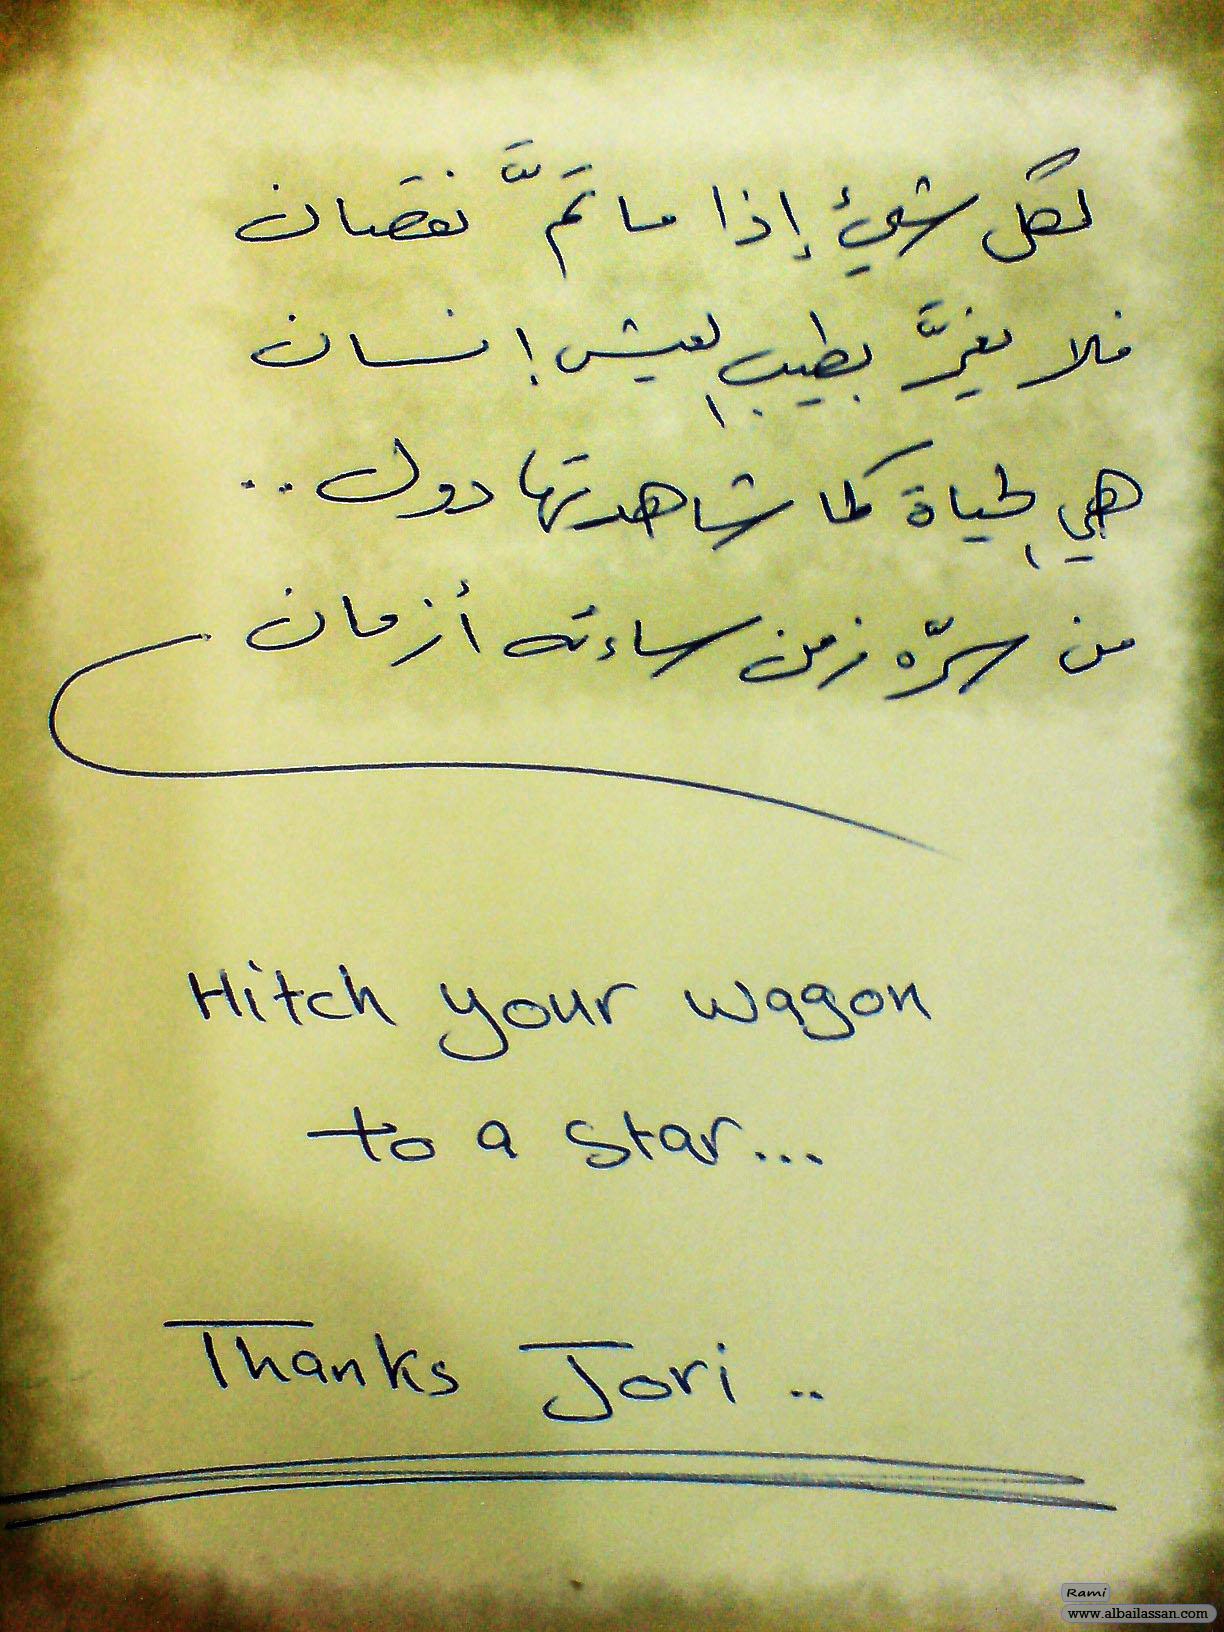 لكل شيئ إذا ما تمَّ نقصان
فلا يغرَّ بطيب العيش إنسان
هي الحياة كما شاهدتها دول ..
من سرّه زمن ساءته أزمان
Hitch your wagon
to a star...
Thanks Jori ..
Rami
www.albailassan.com